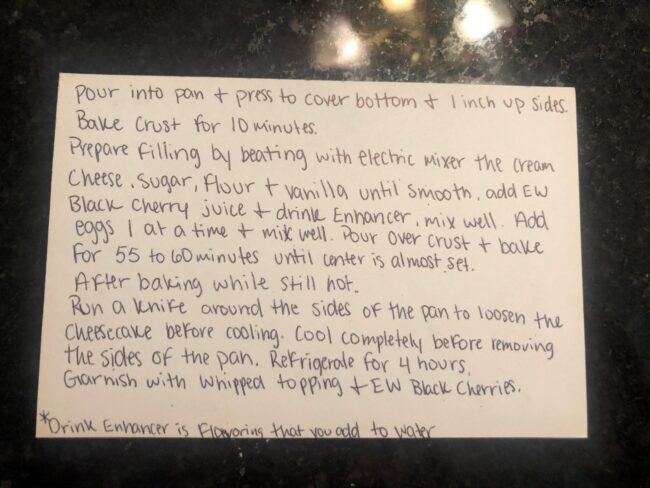 Pour into pan + press to cover bottom + 1 inch up sides.
Bake Crust for 10 minutes.
Prepare Filling by beating with electric mixer the cream
Cheese, Sugar, Flour + vanilla until smooth, add EW
Black Cherry juice + drink Enhancer, mix well. Add
eggs 1 at a time + mix well. Pour over crust + bake
for 55 to 60 minutes until center is almost set.
After baking while still hot.
Run a knife around the sides of the pan to loosen the
Cheesecake before cooling. Cool completely before removing
the sides of the pan. Refrigerate for 4 hours.
Garnish with whipped topping + EW Black Cherries.
*Drink Enhancer is Flavoring that you add to water